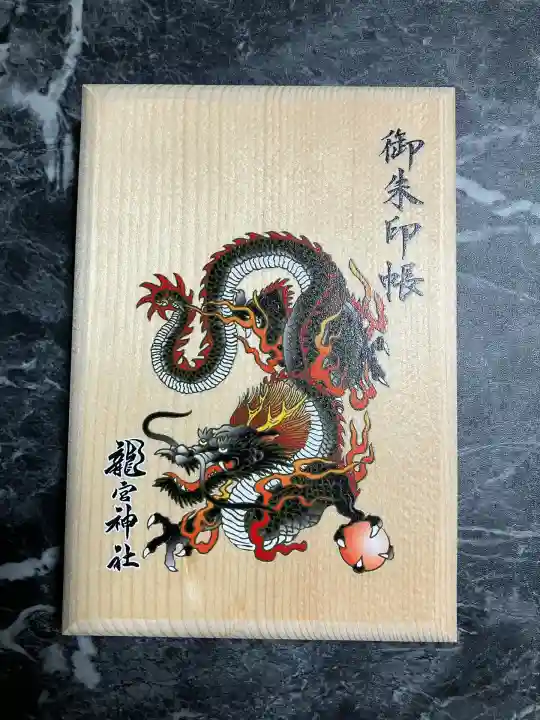 御朱印帳
龍宮神社